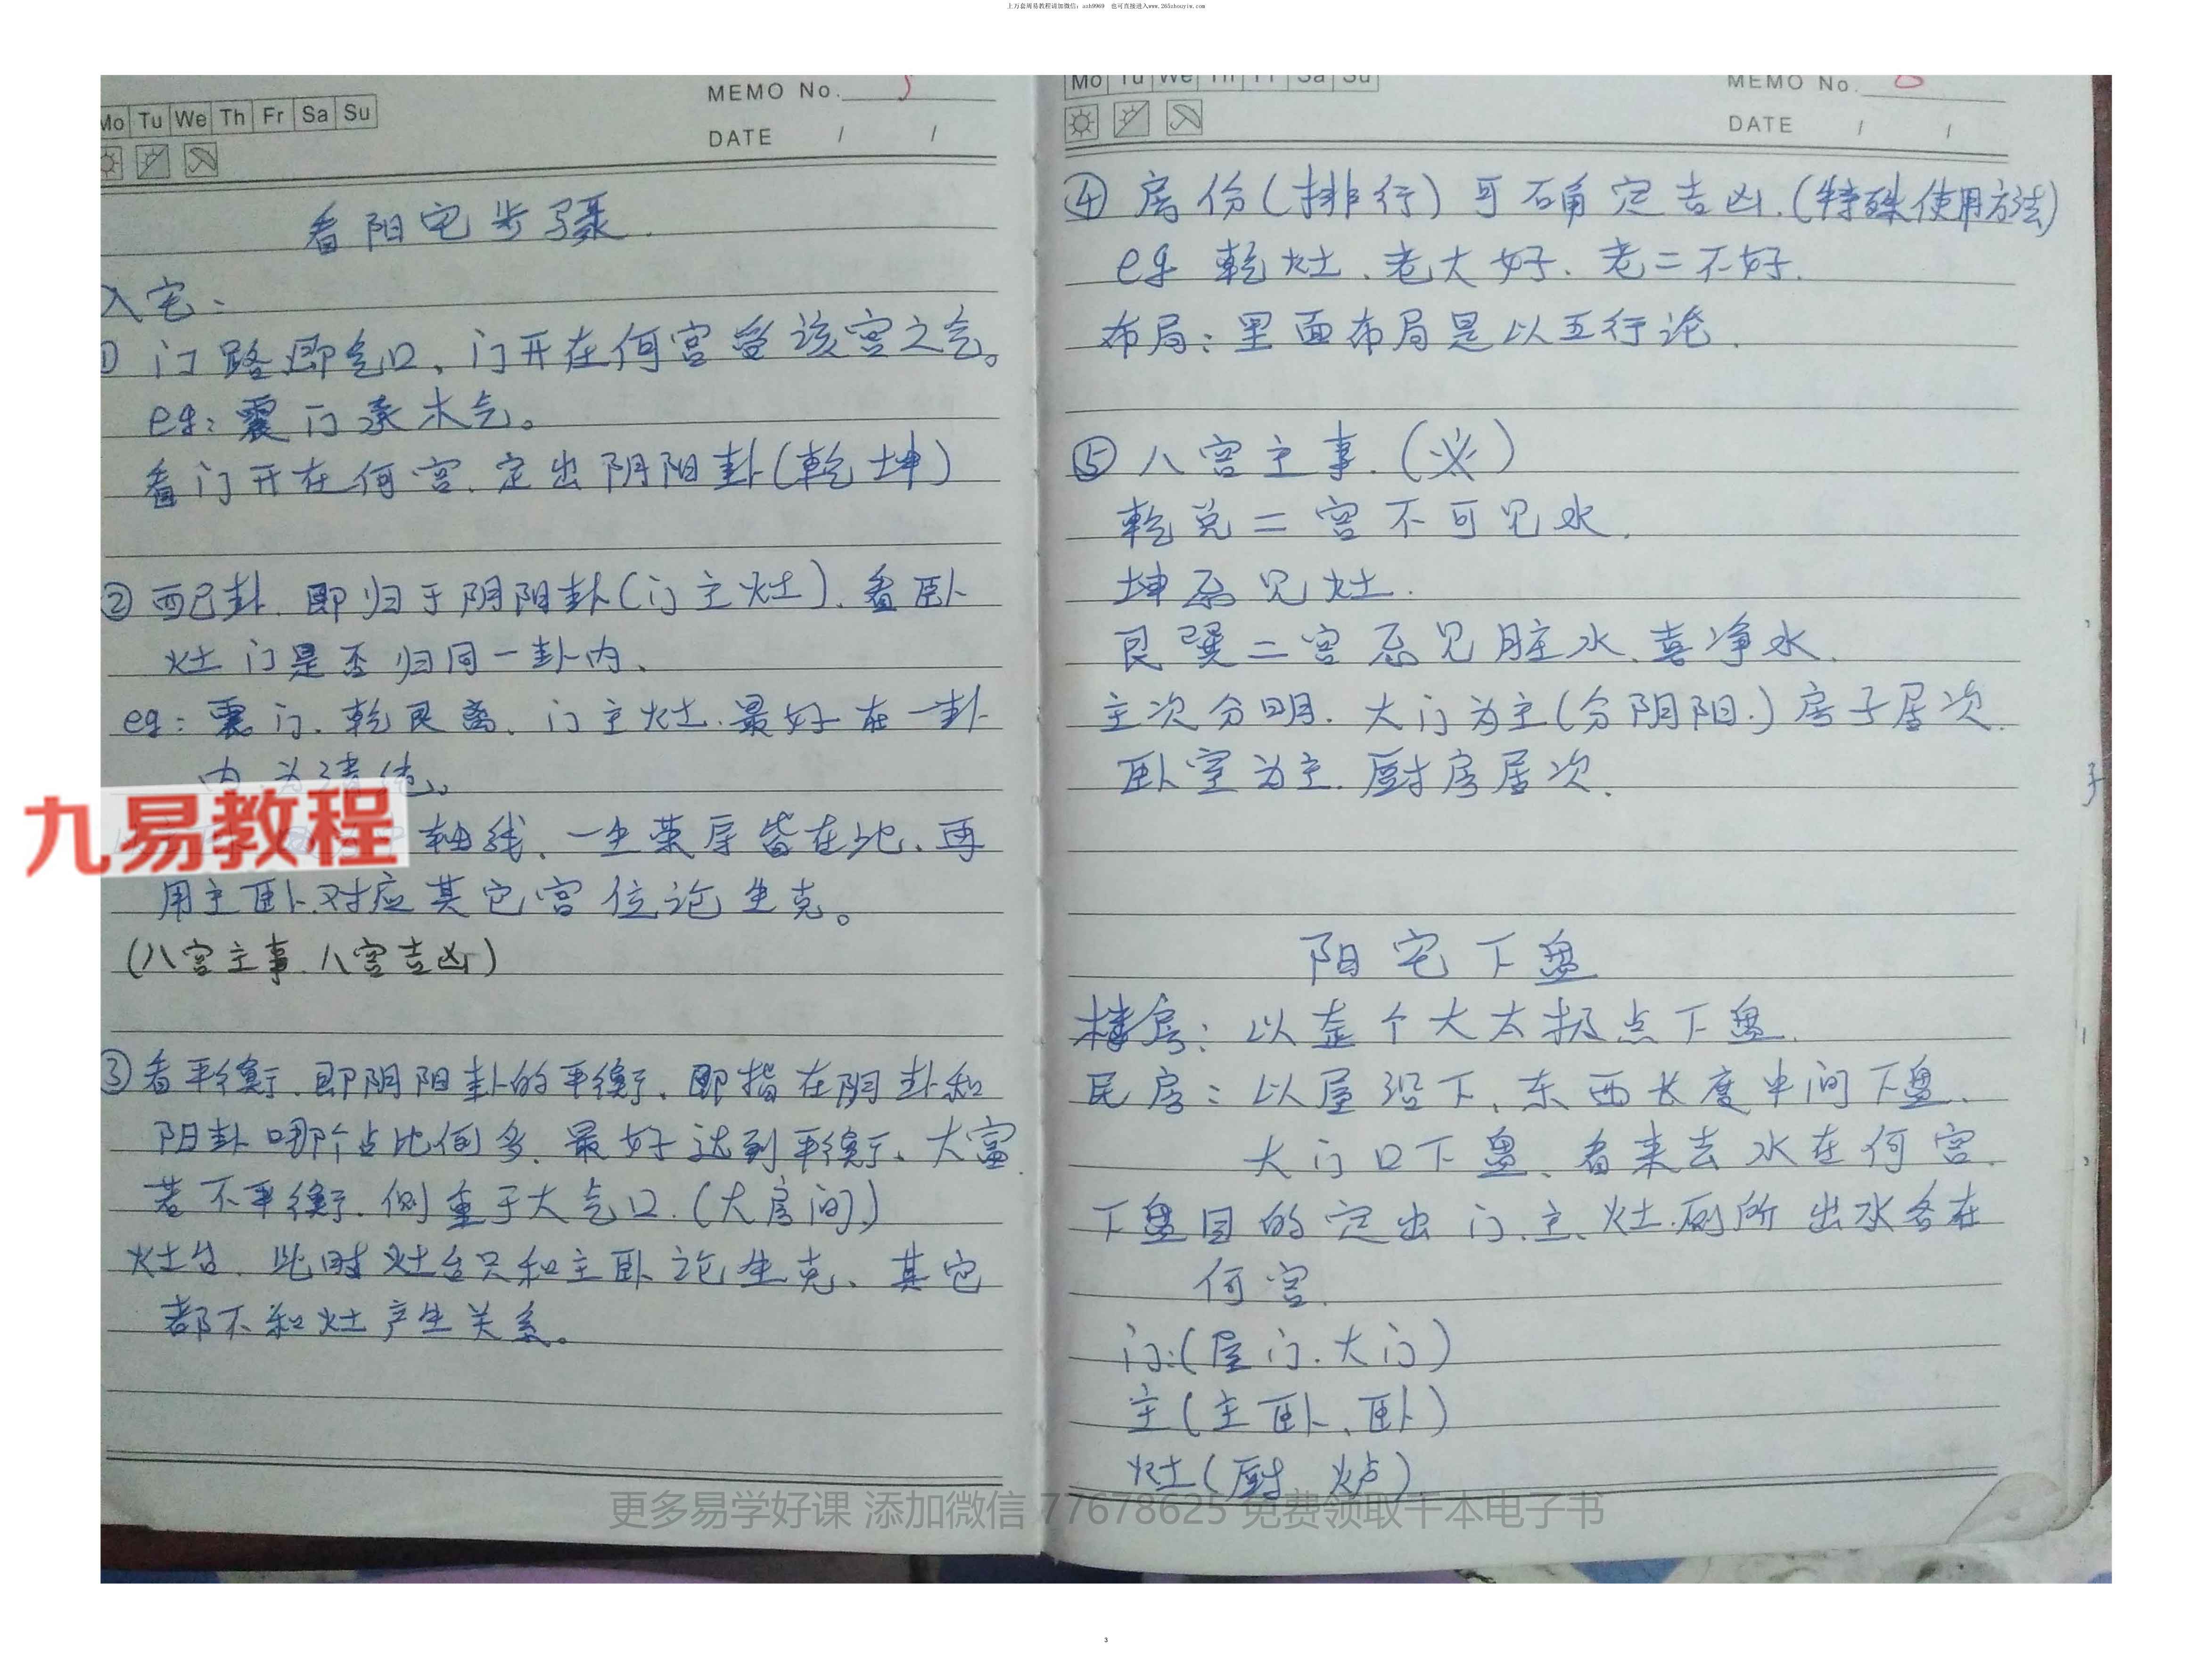 上万套周易教程请加微信：xsh9969 也可直接进入www.265zhouyiw.com
Mo Tu We Th Fr Sa Su
MEMO No. 5
DATE / /
看阳宅步骤.
入宅：
① 门路即气口、门开在何宫受该宫之气。
eg：震门承木气。
看门开在何宫、定出阴阳卦(乾坤)
② 配卦、即归于阴阳卦(门主灶)、看卧
灶门是否归同一卦内、
eg：震门、乾艮离、门主灶、最好在一卦
内、为清纯。
轴线、一生荣辱皆在此、再
用主卧对应其它宫位论生克。
(八宫主事、八宫吉凶)
③ 看平衡、即阴阳卦的平衡、即指在阴卦和
阳卦哪个占比例多、最好达到平衡、大富.
若不平衡、侧重于大气口.(大房间)
灶台、此时灶台只和主卧论生克、其它
都不和灶产生关系。
九易教程
Mo Tu We Th Fr Sa Su
MEMO No. 6
DATE / /
④ 房份(排行)可确定吉凶.(特殊使用方法)
eg 乾灶、老大好、老二不好.
布局：里面布局是以五行论.
⑤ 八宫主事.(必)
乾兑二宫不可见水.
坤忌见灶.
艮巽二宫忌见脏水、喜净水.
主次分明.大门为主(分阴阳.)房子居次.
卧室为主.厨房居次.
阳宅下盘
楼房：以整个大太极点下盘.
民房：以屋沿下、东西长度中间下盘、
大门口下盘、看来去水在何宫.
下盘目的定出门、主、灶、厕所出水各在
何宫.
门：(屋门.大门)
主(主卧、卧)
灶(厨 炉)
更多易学好课 添加微信 77678625 免费领取千本电子书
3